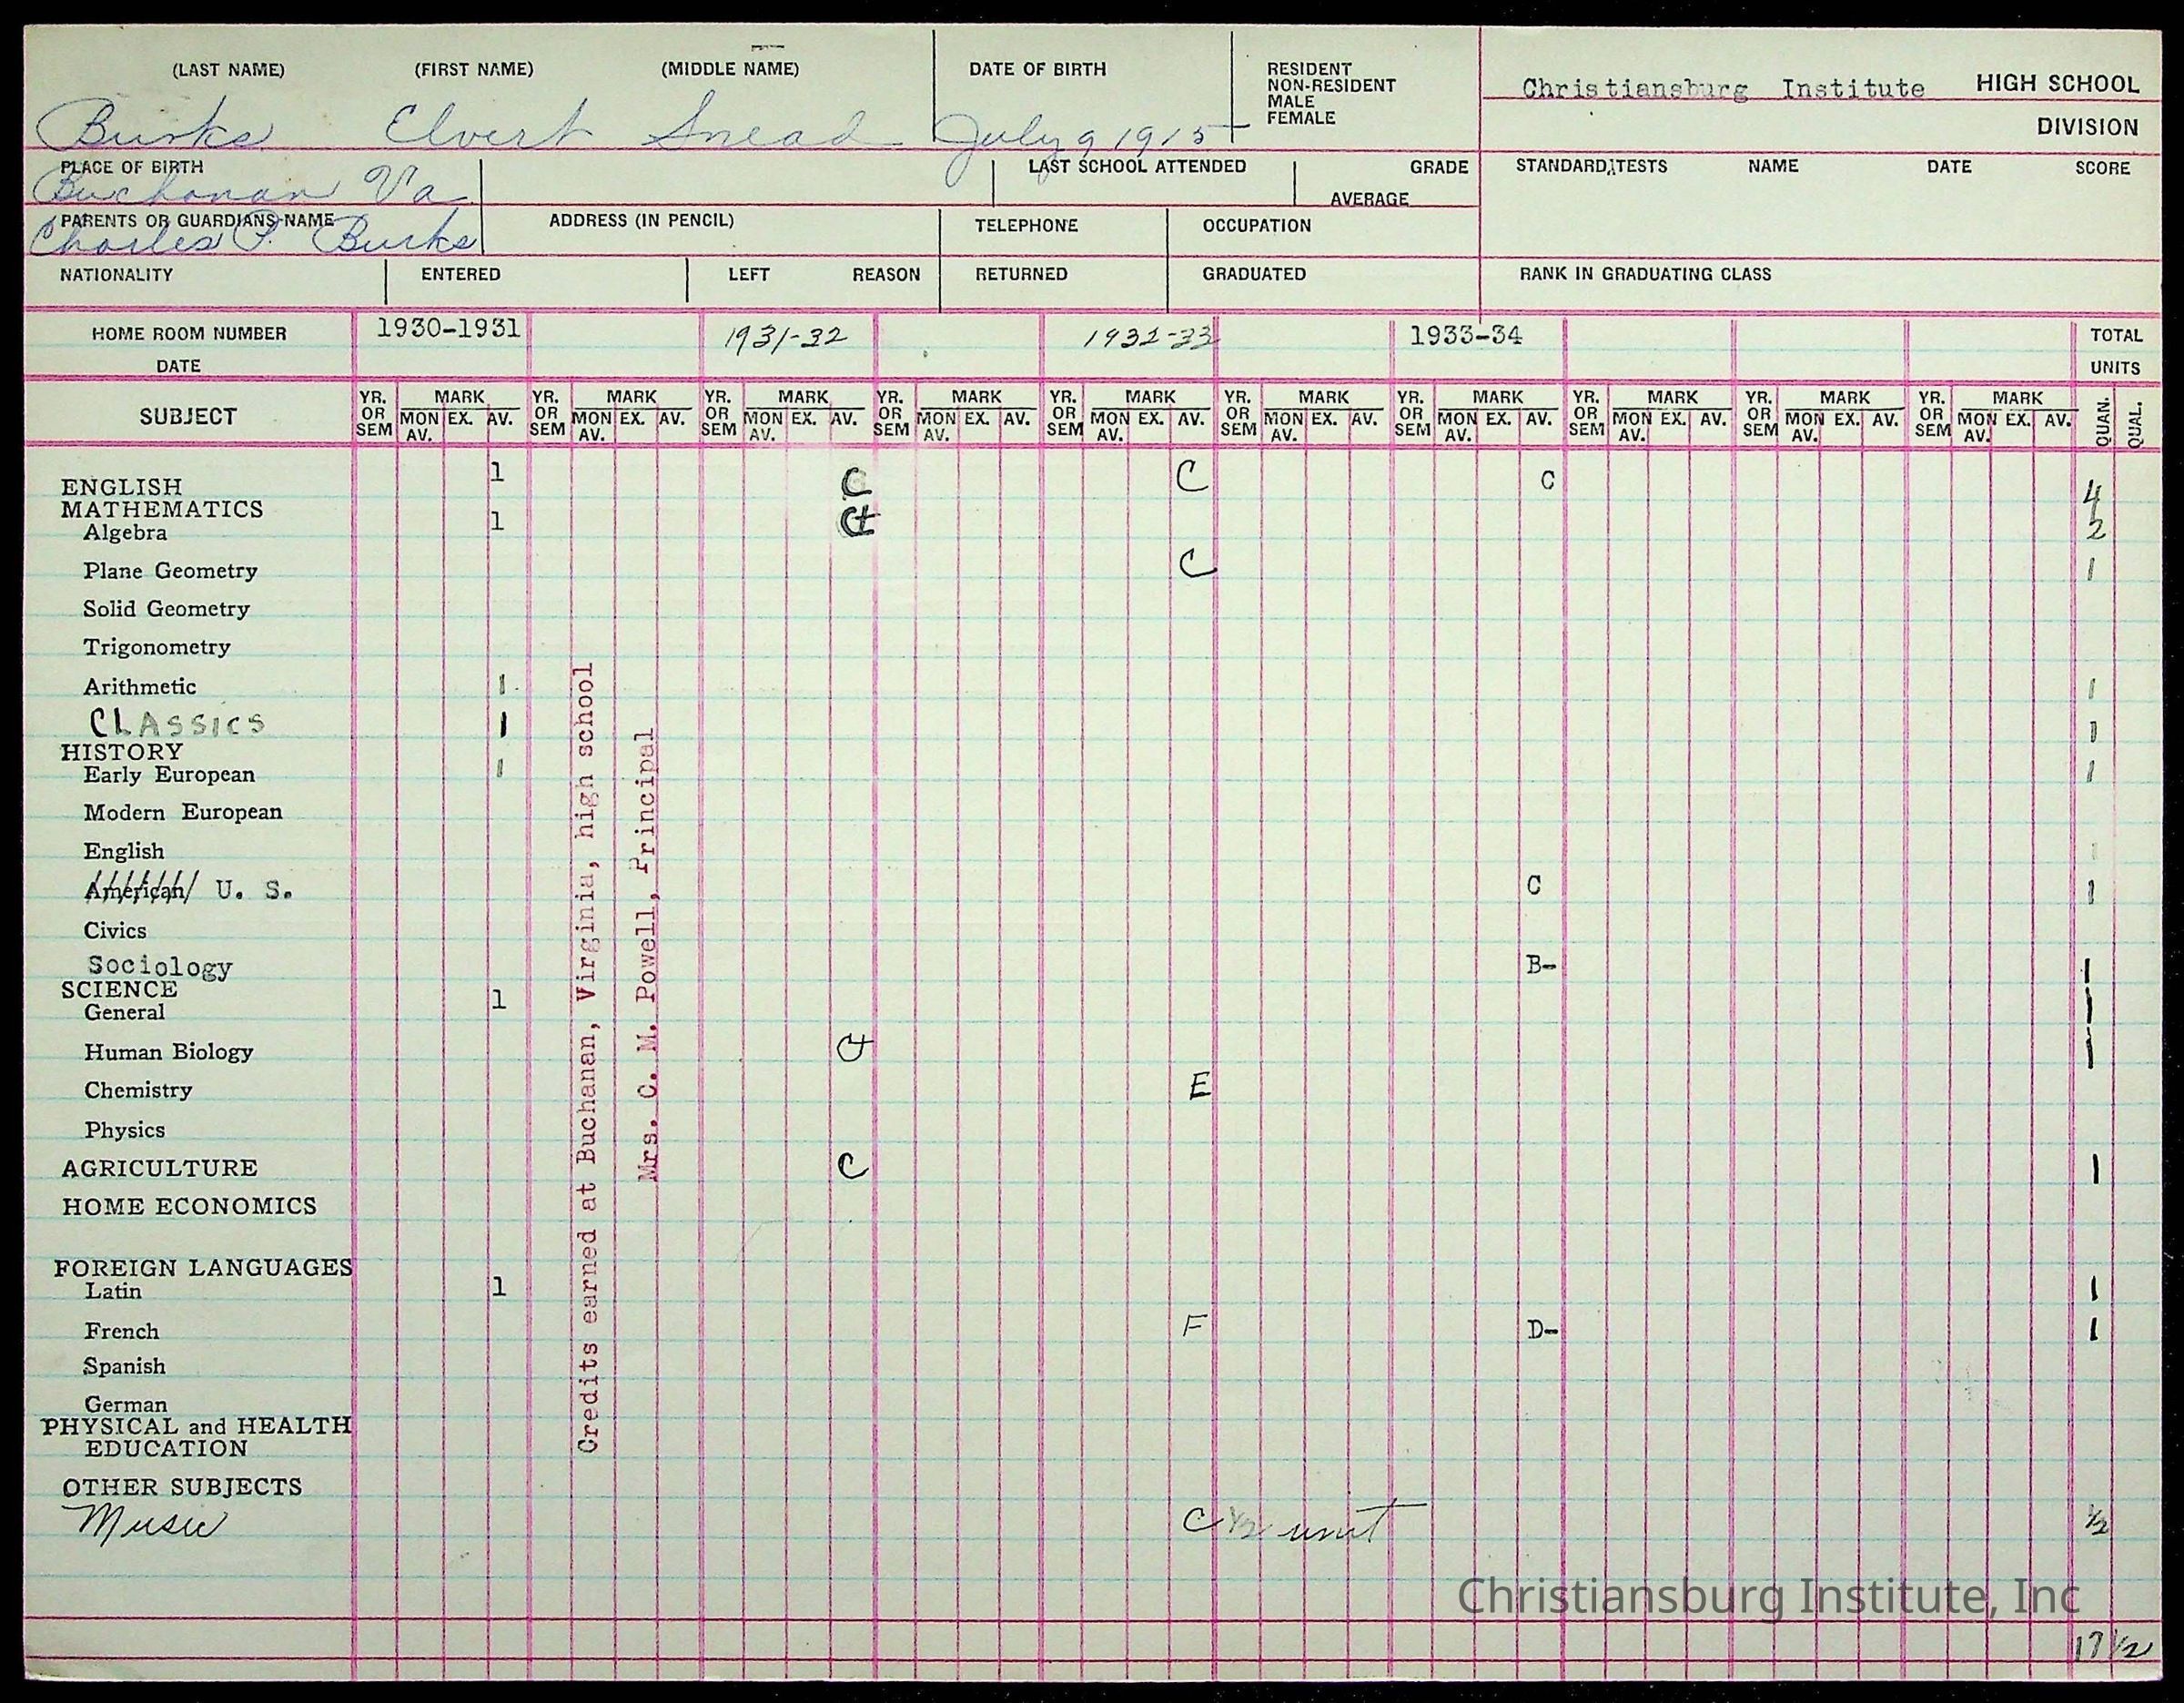 (LAST NAME) (FIRST NAME) (MIDDLE NAME) DATE OF BIRTH RESIDENT
NON-RESIDENT
MALE
FEMALE
Christiansburg Institute HIGH SCHOOL
DIVISION
Burks Elvert Snead July 9 1915
PLACE OF BIRTH LAST SCHOOL ATTENDED GRADE
AVERAGE
STANDARD TESTS NAME DATE SCORE
Buchanan Va
PARENTS OR GUARDIANS NAME ADDRESS (IN PENCIL) TELEPHONE OCCUPATION
Charles P. Burks
NATIONALITY ENTERED LEFT REASON RETURNED GRADUATED RANK IN GRADUATING CLASS
HOME ROOM NUMBER 1930-1931 1931-32 1932-33 1933-34 TOTAL
DATE UNITS
SUBJECT
YR. OR SEM MARK MON AV. EX. AV. YR. OR SEM MARK MON AV. EX. AV. YR. OR SEM MARK MON AV. EX. AV. YR. OR SEM MARK MON AV. EX. AV. YR. OR SEM MARK MON AV. EX. AV. YR. OR SEM MARK MON AV. EX. AV. YR. OR SEM MARK MON AV. EX. AV. YR. OR SEM MARK MON AV. EX. AV. YR. OR SEM MARK MON AV. EX. AV. YR. OR SEM MARK MON AV. EX. AV. QUAN. QUAL.
ENGLISH 1 C C C 4
MATHEMATICS
Algebra 1 C+ 2
Plane Geometry C 1
Solid Geometry
Trigonometry
Arithmetic 1 1
CLASSICS 1 1
HISTORY
Early European 1 1
Modern European
English 1
American U. S. C 1
Civics
Sociology B- 1
SCIENCE
General 1 1
Human Biology C+ 1
Chemistry E
Physics
AGRICULTURE C 1
HOME ECONOMICS
FOREIGN LANGUAGES
Latin 1 1
French F D- 1
Spanish
German
PHYSICAL and HEALTH
EDUCATION
OTHER SUBJECTS
Music C 1/2 unit 1/2
17 1/2
Credits earned at Buchanan, Virginia, high school
Mrs. C. M. Powell, Principal
Christiansburg Institute, Inc